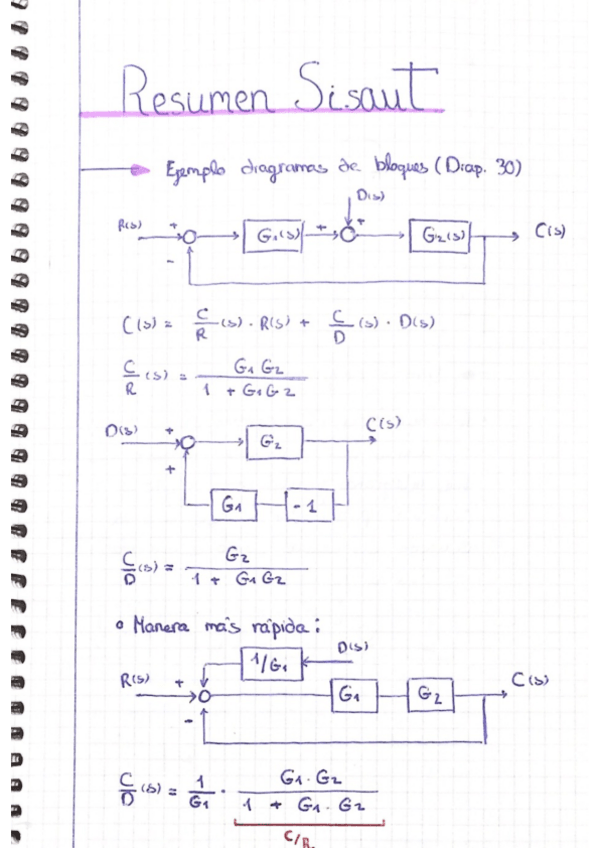 Resumen Sisaut
Ejemplo diagramas de bloques (Diap. 30)
D(s)
R(s) + - G1(s) + + G2(s) C(s)
C(s) = C/R (s) · R(s) + C/D (s) · D(s)
C/R (s) = G1 G2 / 1 + G1 G2
D(s) + + G2 C(s)
G1 -1
C/D (s) = G2 / 1 + G1 G2
Manera más rápida:
1/G1 D(s)
R(s) + - G1 G2 C(s)
C/D (s) = 1/G1 · G1 · G2 / 1 + G1 · G2
C/R